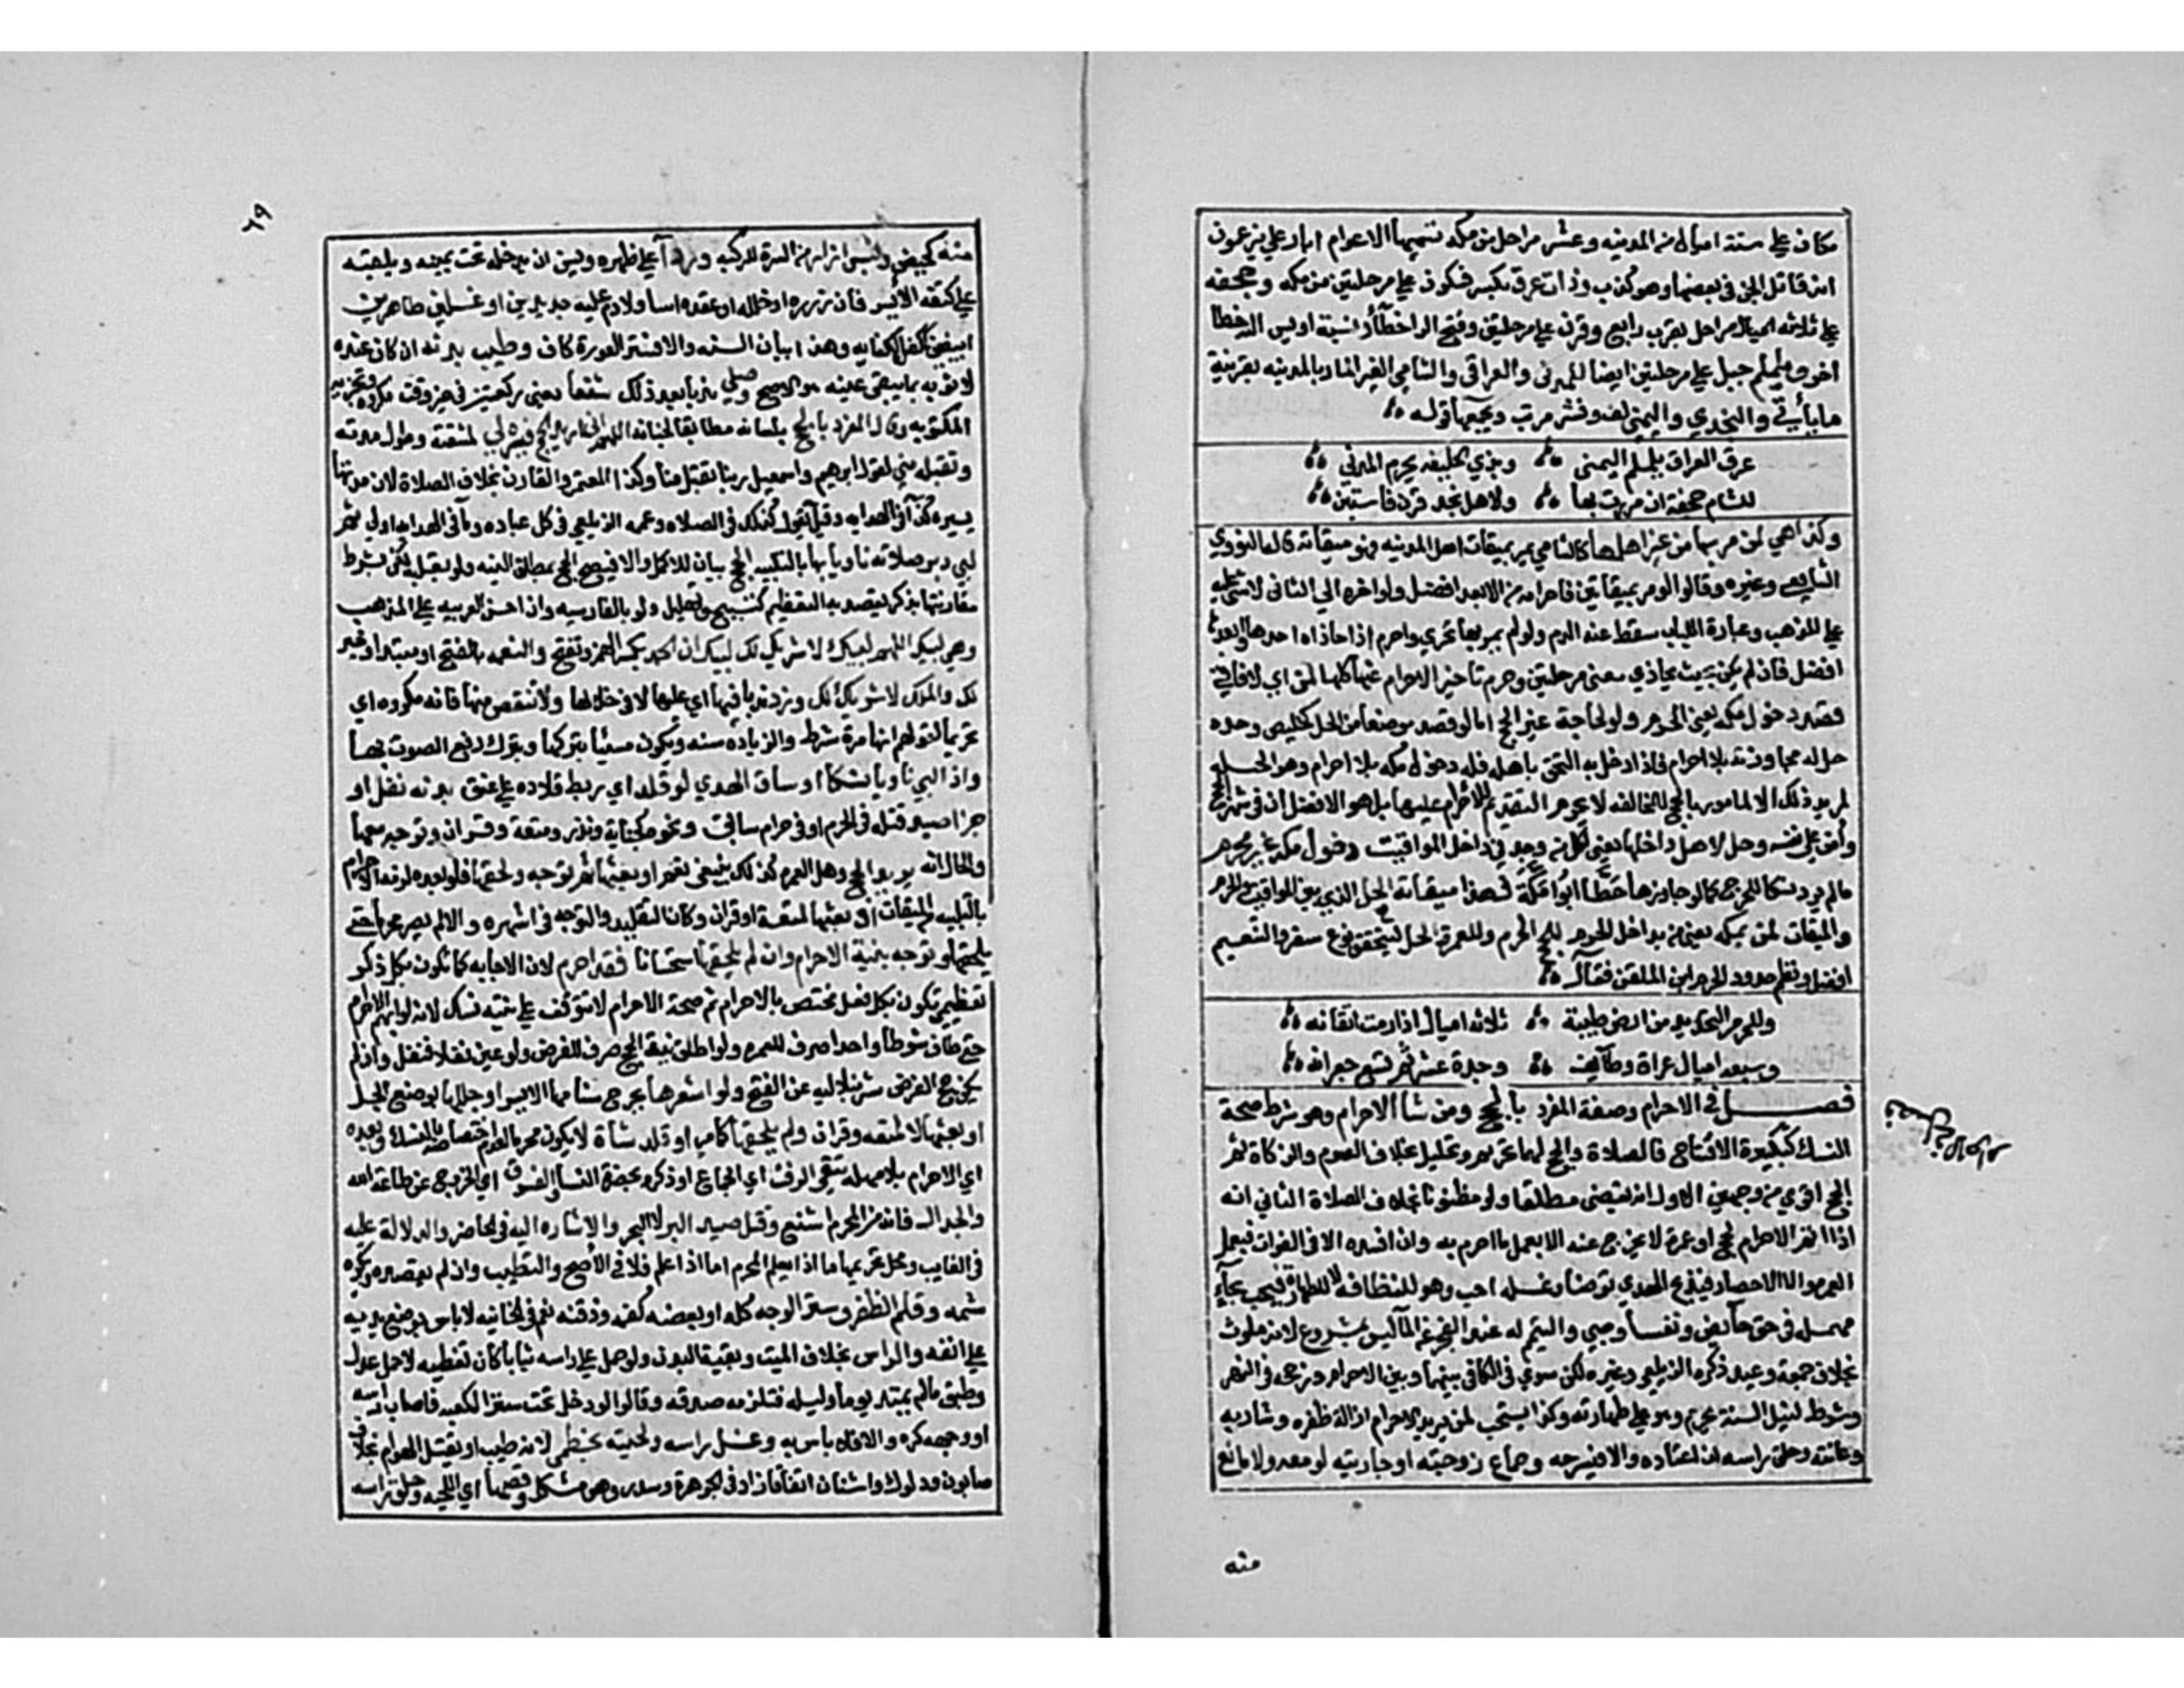 مكان على ستة اميال من المدينه وعشر مراحل من مكه تسميها الاعوام ابار علي يزعمون
انه قاتل الجن في بعضها وهو كذب وذات عرق بكسر فسكون على مرحلتين من مكه وجحفه
على ثلاثه مراحل بقرب رابغ وقرن على مرحلتين وفتح الراء خطأ ونسبة اويس اليه خطا
اخر ويلملم جبل على مرحلتين ايضا للمدني والعراقي والشامي الغير المار بالمدينه بقرينة
ما يأتي والنجدي واليمني لف ونشر مرتب ويجمعها قوله
عرق العراق يلملم اليمنى وبذي الحليفه يحرم المدني
للشام جحفة ان مررت بها ولاهل نجد قرن فاستبن
وكذا هي لمن مر بها من غير اهلها كالشامي يمر بميقات اهل المدينه فهو ميقاته قاله النووي
الشافعي وغيره وقالوا لو مر بميقاتين فاحرامه من الابعد افضل ولو اخره الى الثانى لا شي عليه
على المذهب وعبارة اللباب سقط عنه الدم ولو لم يمر بها تحرى واحرم اذا حاذاه احدها وابعدها
افضل فان لم يكن بحيث يحاذي فعلى مرحلتين وحرم تاخير الاحرام عنها كلها لمن اي لافاقي
قصد دخول مكه يعني الحرم ولو لحاجة غير الحج اما لو قصد موضعا من الحل كخليص وجده
حل له مجاوزته بلا احرام فاذا دخل به التحق باهله فله دخول مكه بلا احرام وهو الحيله
لمريد ذلك الا لمامور بالحج للمخالفه لا يحرم التقديم للاحرام عليها بل هو الافضل ان في شهر الحج
وأمن على نفسه وحل لاهل داخلها يعني لكل من وجد في داخل المواقيت دخول مكه غير محرم
مالم يرد نسكا للحرج كما لو جاوزها حطابوا مكة فهذا ميقاته الحل الذي بين المواقيت والحرم
والميقات لمن بمكه يعني من بداخل الحرم للحج الحرم وللعمرة الحل ليتحقق نوع سفر والتنعيم
افضل ونظم حدود الحرم ابن الملقن فقال
وللحرم التحديد من ارض طيبة ثلاثه اميال اذا رمت اتقانه
وسبعه اميال عراق وطايف وجدة عشر ثم تسع جعرانه
فصل في الاحرام وصفة المفرد بالحج ومن شأ الاحرام وهو شرط صحة
النسك كتكبيرة الافتتاح فالصلاة والحج لهما تحريم وتحليل بخلاف الصوم والزكاة ثم
الحج اقوى من وجهين الاول انه يقضى مطلقا ولو مظنونا بخلاف الصلاة الثاني انه
اذا اتم الاحرام بحج او عمرة لا يخرج عنه الا بعمل ما احرم به وان افسده الا في الفوات فبعمل
العمره والا الاحصار فبذبح الهدي توضأ وغسله احب وهو للنظافه لا للطهارة فيجب بحآء
مهملة في حق حائض ونفسأ وصبي والتيمم له عند العجز عن الماء ليس بمشروع لانه ملوث
بخلاف جمعة وعيد ذكره الزيلعي وغيره لكن سوى في الكافي بينهما وبين الاحرام ورجحه في النهر
وشرط لنيل السنة ان يحرم وهو على طهارته وكذا يستحب لمن يريد الاحرام ازالة ظفره وشاربه
وعانته وحلق راسه ان اعتاده والا فيسرحه وجماع زوجته او جاريته لو معه ولا مانع
منه
٦٩
منه كحيض ولبس ازار من السرة للركبه وردآ على ظهره ويسن ان يدخله تحت يمينه ويلقيه
على كتفه الأيسر فان زرره او خلله او عقده اسا ولا دم عليه جديدين او غسيلين طاهرين
ابيضين ككفن الكفايه وهذا بيان السنه والا فستر العورة كاف وطيب بدنه ان كان عنده
لا ثوبه بما يبقى عينه هو الاصح وصلى ندبا بعد ذلك شفعا يعني ركعتين في غير وقت مكروه وتجزيه
المكتوبه وقال المفرد بالحج بلسانه مطابقا لجنانه اللهم اني اريد الحج فيسره لي لمشقته وطول مدته
وتقبله مني لقول ابراهيم واسمعيل ربنا تقبل منا وكذا المعتمر والقارن بخلاف الصلاة لان مدتها
يسيره كذا في الهدايه وقيل يقول كذلك في الصلاه وعمه الزيلعي في كل عباده وما في الهدايه اولى ثم
لبي دبر صلاته ناويا بها بالتلبيه الحج بيان للاكمل والا فيصح الحج بمطلق النيه ولو بقلبه لكن بشرط
مقارنتها بذكر يقصد به التعظيم كتسبيح وتهليل ولو بالفارسيه وان احسن العربيه على المذهب
وهي لبيك اللهم لبيك لا شريك لك لبيك ان الحمد بكسر الهمزه وتفتح والنعمه بالفتح او مبتدا وخبر
لك والملك لا شريك لك وزد ندبا فيها اي عليها لا في خلالها ولا تنقص منها فانه مكروه اي
تحريما لقولهم انها مرة شرط والزياده سنه ويكون مسيئا بتركها وبترك رفع الصوت بها
واذا لبى ناويا نسكا او ساق الهدي لو قلد اي ربط قلاده على عنق بدنه نفل او
جزا صيد قتله في الحرم او في حرام سابق ونحوه كجناية ونذر ومتعة وقران وتوجه معها
والحال انه يريد الحج وهل العمرة كذلك ينبغي نعم او بعثها ثم توجه ولحقها فلو بعده لزمه الاحرام
بالتلبيه من الميقات او بعثها لمتعة او قران وكان التقليد والتوجه في اشهره والا لم يصر محرما حتى
يلحقها وتوجه بنية الاحرام وان لم يلحقها استحسانا فقد احرم لان الاجابه كما تكون بكل ذكر
تعظيمي تكون بكل فعل مختص بالاحرام ثم صحة الاحرام لا تتوقف على نيه نسك لانه لو ابهم الاحرام
حتى طاف شوطا واحدا صرف للعمره ولو اطلق نية الحج صرف للفرض ولو عين نفلا فنفل وان لم
يكن حج الفرض شرنبلاليه عن الفتح ولو اشعرها بجرح سنامها الايسر او جللها بوضع الجل
او بعثها لا لمتعه وقران ولم يلحقها كما مر او قلد شاة لا يكون محرما لعدم اختصاصه بالنسك وبعده
اي الاحرام بلا مهله يتقي الرفث اي الجماع او ذكره بحضرة النسا والفسوق اي الخروج عن طاعة الله
والجدال فانه من المحرم اشنع وقتل صيد البر لا البحر والاشاره اليه في الحاضر والدلالة عليه
في الغايب ومحل تحريمها ما اذا لم يعلم المحرم اما اذا علم فلا في الأصح والتطيب وان لم يقصده ويكره
شمه وقلم الظفر وستر الوجه كله او بعضه كفمه وذقنه نعم في الخانيه لا باس بوضع يديه
على انفه والراس بخلاف الميت وبقية البدن ولو حمل على راسه ثيابا كان تغطيه لا حمل عدل
وطبق مالم يمتد يوما وليله فتلزمه صدقه وقالوا لو دخل تحت ستر الكعبه فاصاب راسه
او وجهه كره والا فلا باس به وغسل راسه ولحيته بخطمي لانه طيب او يقتل الهوام بخلاف
صابون ودلوك واشنان اتفاقا زاد في الجوهرة وسدر وهو مشكل وقصها اي اللحيه وحلق راسه